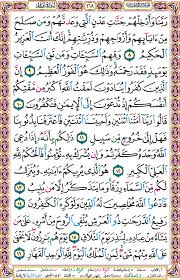 رَبَّنَا وَأَدْخِلْهُمْ جَنَّٰتِ عَدْنٍ ٱلَّتِى وَعَدتَّهُمْ وَمَن صَلَحَ
مِنْ ءَابَآئِهِمْ وَأَزْوَٰجِهِمْ وَذُرِّيَّٰتِهِمْ إِنَّكَ أَنتَ ٱلْعَزِيزُ
ٱلْحَكِيمُ ٨ وَقِهِمُ ٱلسَّيِّـَٔاتِ وَمَن تَقِ ٱلسَّيِّـَٔاتِ
يَوْمَئِذٍ فَقَدْ رَحِمْتَهُۥ وَذَٰلِكَ هُوَ ٱلْفَوْزُ ٱلْعَظِيمُ ٩ إِنَّ
ٱلَّذِينَ كَفَرُوا۟ يُنَادَوْنَ لَمَقْتُ ٱللَّهِ أَكْبَرُ مِن مَّقْتِكُمْ
أَنفُسَكُمْ إِذْ تُدْعَوْنَ إِلَى ٱلْإِيمَٰنِ فَتَكْفُرُونَ ١٠
قَالُوا۟ رَبَّنَآ أَمَتَّنَا ٱثْنَتَيْنِ وَأَحْيَيْتَنَا ٱثْنَتَيْنِ فَٱعْتَرَفْنَا بِذُنُوبِنَا
فَهَلْ إِلَىٰ خُرُوجٍ مِّن سَبِيلٍ ١١ ذَٰلِكُم بِأَنَّهُۥٓ إِذَا دُعِىَ
ٱللَّهُ وَحْدَهُۥ كَفَرْتُمْ وَإِن يُشْرَكْ بِهِۦ تُؤْمِنُوا۟ فَٱلْحُكْمُ لِلَّهِ
ٱلْعَلِىِّ ٱلْكَبِيرِ ١٢ هُوَ ٱلَّذِى يُرِيكُمْ ءَايَٰتِهِۦ وَيُنَزِّلُ لَكُم
مِّنَ ٱلسَّمَآءِ رِزْقًا وَمَا يَتَذَكَّرُ إِلَّا مَن يُنِيبُ ١٣
فَٱدْعُوا۟ ٱللَّهَ مُخْلِصِينَ لَهُ ٱلدِّينَ وَلَوْ كَرِهَ ٱلْكَٰفِرُونَ ١٤
رَفِيعُ ٱلدَّرَجَٰتِ ذُو ٱلْعَرْشِ يُلْقِى ٱلرُّوحَ مِنْ أَمْرِهِۦ عَلَىٰ
مَن يَشَآءُ مِنْ عِبَادِهِۦ لِيُنذِرَ يَوْمَ ٱلتَّلَاقِ ١٥ يَوْمَ هُم بَٰرِزُونَ لَا يَخْفَىٰ
عَلَى ٱللَّهِ مِنْهُمْ شَىْءٌ لِّمَنِ ٱلْمُلْكُ ٱلْيَوْمَ لِلَّهِ ٱلْوَٰحِدِ ٱلْقَهَّارِ ١٦